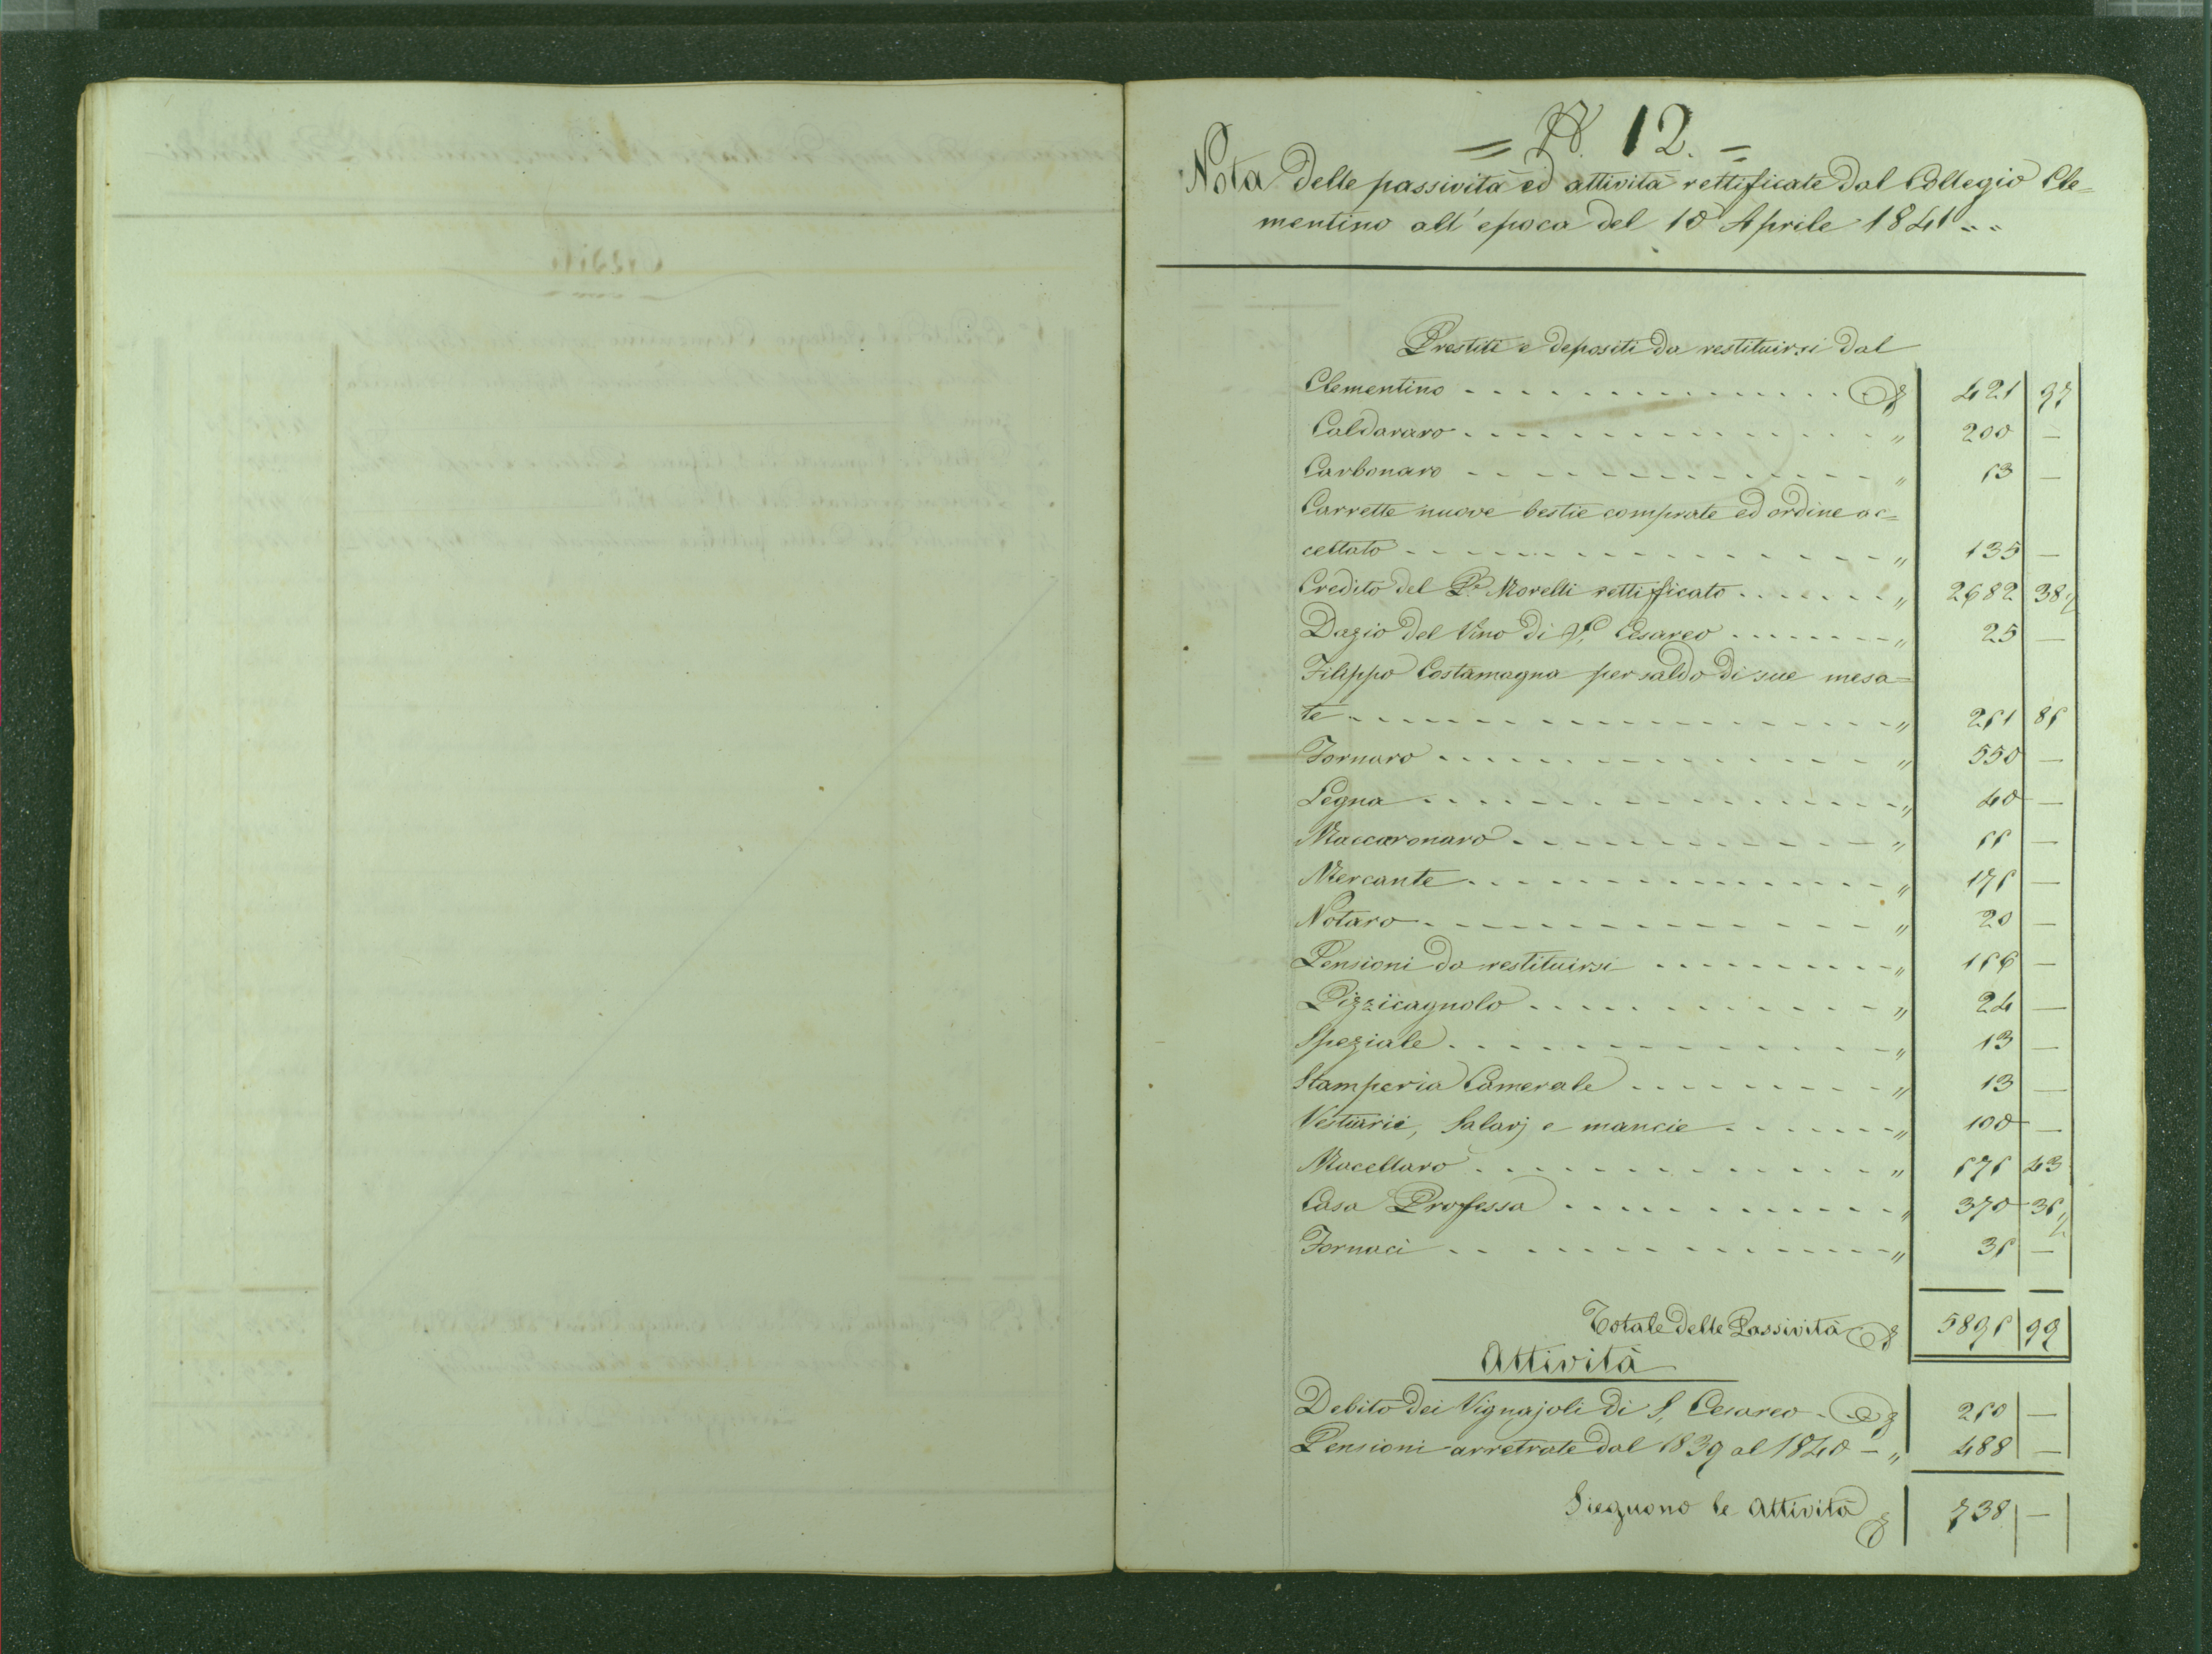 = N. 12. =
Nota delle passività ed attività rettificate dal Collegio Cle=
mentino all'epoca del 10 Aprile 1841..
Prestiti e depositi da restituirsi dal
Clementino 421 97
Caldararo " 200 —
Carbonaro " 53 —
Carrette nuove bestie comprate ed ordine ac=
cettato " 135 —
Credito del P. Morelli rettificato " 2682 38½
Dazio del Vino di S. Cesareo " 25 —
Filippo Costamagna per saldo di sue mesa=
te " 251 85
Fornaro " 550 —
Legna " 40 —
Maccaronaro " 55 —
Mercante " 175 —
Notaro " 20 —
Pensioni da restituirsi " 156 —
Pizzicagnolo " 24 —
Speziale " 13 —
Stamperia Camerale " 13 —
Vestiarii, Salarj e mancie " 100 —
Macellaro " 575 43
Casa Professa " 370 35½
Fornaci " 35 —
Totale delle Passività 5895 99
Attività
Debito dei Vignajoli di S. Cesareo 250 —
Pensioni arretrate dal 1839 al 1840 — " 488 —
Sieguono le Attività 738 —